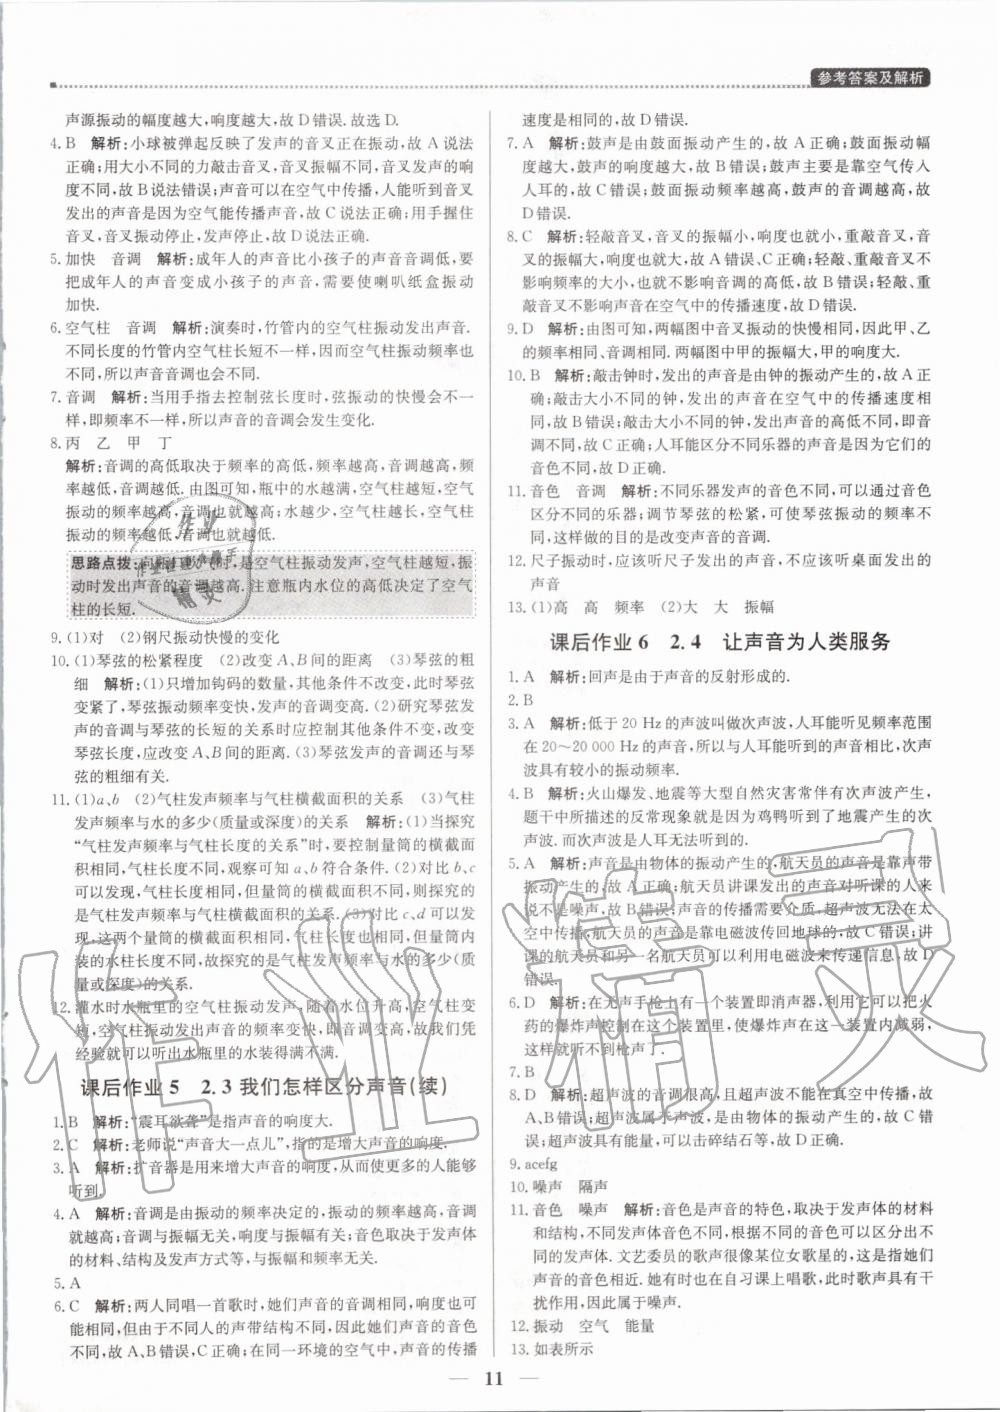 参考答案及解析
声源振动的幅度越大,响度越大,故D错误.故选D.
4. B 解析:小球被弹起反映了发声的音叉正在振动,故A说法
正确;用大小不同的力敲击音叉,音叉振幅不同,音叉发声的响
度不同,故B说法错误;声音可以在空气中传播,人能听到音叉
发出的声音是因为空气能传播声音,故C说法正确;用手握住
音叉,音叉振动停止,发声停止,故D说法正确.
5. 加快 音调 解析:成年人的声音比小孩子的声音音调低,要
把成年人的声音变成小孩子的声音,需要使喇叭纸盒振动
加快.
6. 空气柱 音调 解析:演奏时,竹管内的空气柱振动发出声音.
不同长度的竹管内空气柱长短不一样,因而空气柱振动频率也
不同,所以声音音调也会不同.
7. 音调 解析:当用手指去控制弦长度时,弦振动的快慢会不一
样,即频率不一样,所以声音的音调会发生变化.
8. 丙 乙 甲 丁
解析:音调的高低取决于频率的高低,频率越高,音调越高,频
率越低,音调越低.由图可知,瓶中的水越满,空气柱越短,空气
振动的频率越高,音调也就越高;水越少,空气柱越长,空气柱
振动的频率越低,音调也就越低.
思路点拨:向瓶口吹气时,是空气柱振动发声,空气柱越短,振
动时发出声音的音调越高.注意瓶内水位的高低决定了空气
柱的长短.
9. (1)对 (2)钢尺振动快慢的变化
10. (1)琴弦的松紧程度 (2)改变A、B间的距离 (3)琴弦的粗
细 解析:(1)只增加钩码的数量,其他条件不改变,此时琴弦
变紧了,琴弦振动频率变快,发声的音调变高.(2)研究琴弦发
声的音调与琴弦的长短的关系时应控制其他条件不变,改变
琴弦长度,应改变A、B间的距离.(3)琴弦发声的音调还与琴
弦的粗细有关.
11. (1)a、b (2)气柱发声频率与气柱横截面积的关系 (3)气柱
发声频率与水的多少(质量或深度)的关系 解析:(1)当探究
“气柱发声频率与气柱长度的关系”时,要控制量筒的横截面
积相同,气柱长度不同,观察可知a、b符合条件.(2)对比b、c
可以发现,气柱长度相同,但量筒的横截面积不同,则探究的
是气柱发声频率与气柱横截面积的关系.(3)对比c、d可以发
现,这两个量筒的气柱长度相同,横截面积相同,但量筒内装
的水柱长度不同,故探究的是气柱发声频率与水的多少(质
量或深度)的关系.
12. 灌水时水瓶里的空气柱振动发声,随着水位升高,空气柱变
短,空气柱振动发出声音的频率变快,即音调变高,故我们凭
经验就可以听出水瓶里的水装得满不满.
课后作业5 2.3 我们怎样区分声音(续)
1. B 解析:“震耳欲聋”是指声音的响度大.
2. C 解析:老师说“声音大一点儿”,指的是增大声音的响度.
3. A 解析:扩音器是用来增大声音的响度,从而使更多的人能够
听到.
4. A 解析:音调是由振动的频率决定的,振动的频率越高,音调
就越高;音调与振幅无关,响度与振幅有关;音色取决于发声体
的材料、结构及发声方式等,与振幅和频率无关.
5. A
6. C 解析:两人同唱一首歌时,她们声音的音调相同,响度也可能
相同,但由于不同人的声带结构不同,因此她们发出声音的音色
不同,故A、B错误,C正确;在同一环境的空气中,声音的传播
速度是相同的,故D错误.
7. A 解析:鼓声是由鼓面振动产生的,故A正确;鼓面振动幅
度越大,鼓声的响度越大,故B错误;鼓声主要是靠空气传入
人耳的,故C错误;鼓面振动频率越高,鼓声的音调越高,故
D错误.
8. C 解析:轻敲音叉,音叉的振幅小,响度也就小,重敲音叉,音
叉的振幅大,响度也就大,故A错误、B错误;轻敲、重敲音叉不
影响振动的频率大小,也就不影响音调的高低,故C正确;轻敲、重
敲音叉不影响声音在空气中的传播速度,故D错误.
9. D 解析:由图可知,两幅图中音叉振动的快慢相同,因此甲、乙
的频率相同、音调相同.两幅图中甲的振幅大,甲的响度大.
10. B 解析:敲击钟时,发出的声音是由钟的振动产生的,故A正
确;敲击大小不同的钟,发出的声音在空气中的传播速度相同,
故B错误;敲击大小不同的钟,发出声音的高低不同,即音
调不同,故C正确;人耳能区分不同乐器的声音是因为它们的
音色不同,故D正确.
11. 音色 音调 解析:不同乐器发声的音色不同,可以通过音色
区分不同的乐器;调节琴弦的松紧,可使琴弦振动的频率不
同,这样做的目的是改变声音的音调.
12. 尺子振动时,应该听尺子发出的声音,不应该听桌面发出的
声音
13. (1)高 高 频率 (2)大 大 振幅
课后作业6 2.4 让声音为人类服务
1. A 解析:回声是由于声音的反射形成的.
2. B
3. A 解析:低于20 Hz的声波叫做次声波,人耳能听见频率范围
在20~20 000 Hz的声音,所以与人耳能听到的声音相比,次声
波具有较小的振动频率.
4. B 解析:火山爆发、地震等大型自然灾害常伴有次声波产生,
题干中所描述的反常现象就是因为鸡鸭听到了地震产生的次
声波.而次声波是人耳无法听到的.
5. A 解析:声音是由物体的振动产生的,航天员的声音是靠声带
振动产生的,故A正确;航天员讲课发出的声音对听课的人来
说不是噪声,故B错误;声音的传播需要介质,超声波无法在太
空中传播,航天员的声音是靠电磁波传回地球的,故C错误;讲
课的航天员和另一名航天员可以利用电磁波来传递信息,故D
错误.
6. D 解析:在无声手枪上有一个装置即消声器,利用它可以把火
药的爆炸声控制在这个装置里,使爆炸声在这个装置内减弱,
这样枪声就很小了.
7. B
8. D 解析:超声波的音调很高,但响度不一定大,不一定刺耳,故
A、B错误;超声波属于声波,是由物体的振动产生的,故C错
误;超声波具有能量,可以击碎结石等,故D正确.
9. acefg
10. 噪声 隔声
11. 音色 噪声 解析:音色是声音的特色,取决于发声体的材料
和结构,不同发声体音色不同,根据不同的音色可以区分出不
同的发声体.文艺委员的歌声很像某位女歌星的,这是指她们
声音的音色相近.她有时也在自习课上唱歌,此时歌声具有干
扰作用,因此属于噪声.
12. 振动 空气 能量
13. 如表所示
11
作业精灵